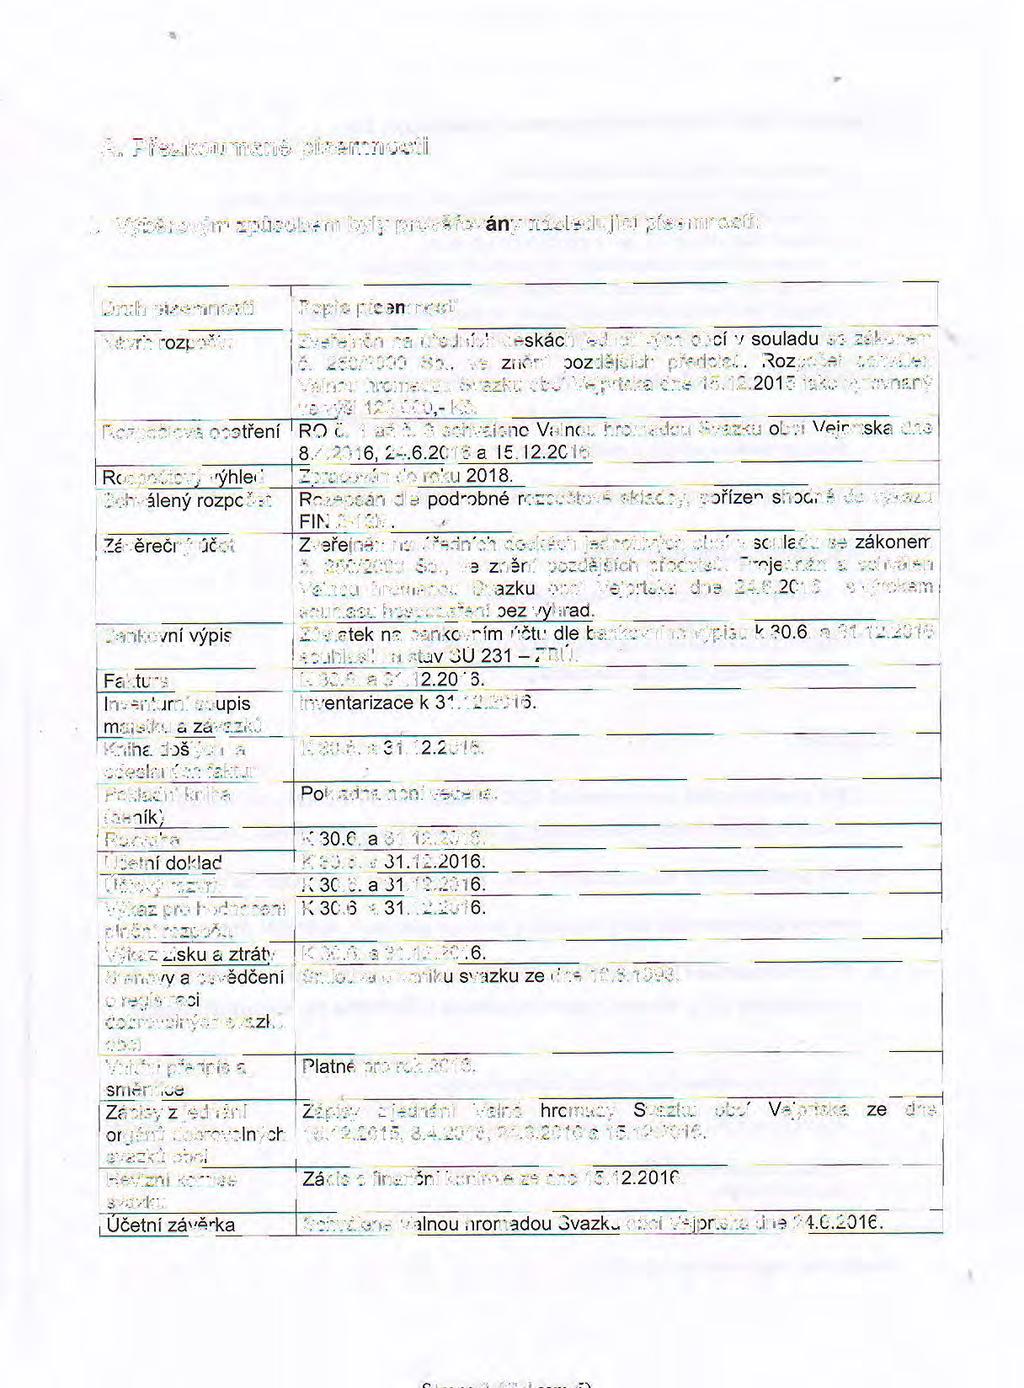 A. Přezkoumané písemnosti
Výběrovým způsobem byly prověřovány následující písemnosti:
Druh písemnosti Popis písemnosti
Návrh rozpočtu Zveřejněn na úředních deskách jednotlivých obcí v souladu se zákonem
č. 250/2000 Sb., ve znění pozdějších předpisů. Rozpočet schválen
Valnou hromadou Svazku obcí Vejprtska dne 15.12.2015 jako vyrovnaný
ve výši 000,- Kč.
Rozpočtová opatření RO č. 1 až č. 3 schváleno Valnou hromadou Svazku obcí Vejprtska dne
8.4.2016, 24.6.2016 a 15.12.2016.
Rozpočtový výhled Zpracován do roku 2018.
Schválený rozpočet Rozepsán dle podrobné rozpočtové skladby, pořízen shodně do výkazu
FIN 2-12M.
Závěrečný účet Zveřejněn na úředních deskách jednotlivých obcí v souladu se zákonem
č. 250/2000 Sb., ve znění pozdějších předpisů. Projednán a schválen
Valnou hromadou Svazku obcí Vejprtska dne 24.6.2016 s výrokem
souhlasu hospodaření bez výhrad.
Bankovní výpis Zůstatek na bankovním účtu dle bankovního výpisu k 30.6. a 31.12.2016
souhlasil na stav SÚ 231 – ZBÚ.
Faktura K 30.6. a 31.12.2016.
Inventurní soupis Inventarizace k 31.12.2016.
majetku a závazků
Kniha došlých a K 30.6. a 31.12.2016.
odeslaných faktur
Pokladní kniha Pokladna není vedena.
(deník)
Rozvaha K 30.6. a 31.12.2016.
Účetní doklad K 30.6. a 31.12.2016.
Účtový rozvrh K 30.6. a 31.12.2016.
Výkaz pro hodnocení K 30.6. a 31.12.2016.
plnění rozpočtu
Výkaz zisku a ztráty K 30.6. a 31.12.2016.
Stanovy a osvědčení Smlouva o vzniku svazku ze dne
o registraci
dobrovolných svazků
obcí
Vnitřní předpis a Platné pro rok 2016.
směrnice
Zápisy z jednání Zápisy z jednání Valné hromady Svazku obcí Vejprtska ze dne
orgánů dobrovolných 8.4.2016, a 15.12.2016.
svazků obcí
Revizní komise Zápis o finanční kontrole ze dne 15.12.2016.
svazku
Účetní závěrka Schválena Valnou hromadou Svazku obcí Vejprtska dne 24.6.2016.